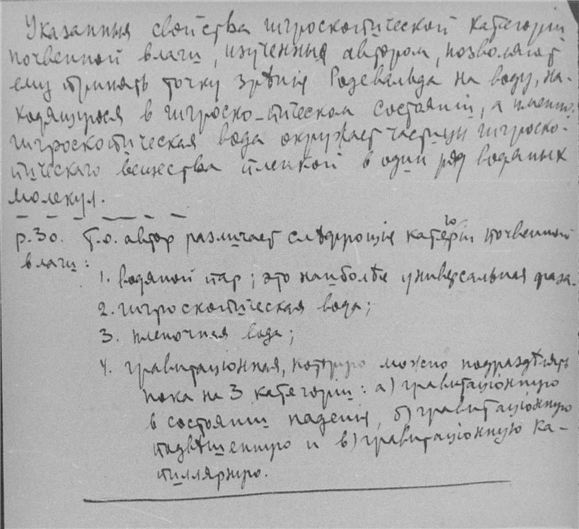 Указанныя свойства гигроскопической категоріи
почвенной влаги, изученныя автором, позволяют
ему принять точку зрѣнія Родевальда на воду, на-
ходящуюся в гигроско-пическом состояніи, а именно:
гигроскопическая вода окружает частицы гигроско-
пическаго вещества пленкой в один ряд водяных
молекул.
p.30. Т.о. автор различает слѣдующія категоріи почвенной
влаги:
1. водяной пар; это наиболѣе универсальная фаза.
2. гигроскопическая вода;
3. пленочная вода;
4. гравитаціонная, которую можно подраздѣлять
пока на 3 категоріи: а) гравитаціонную
в состояніи паденія, б) гравитаціонную
подвѣшенную и в) гравитаціонную ка-
пиллярную.